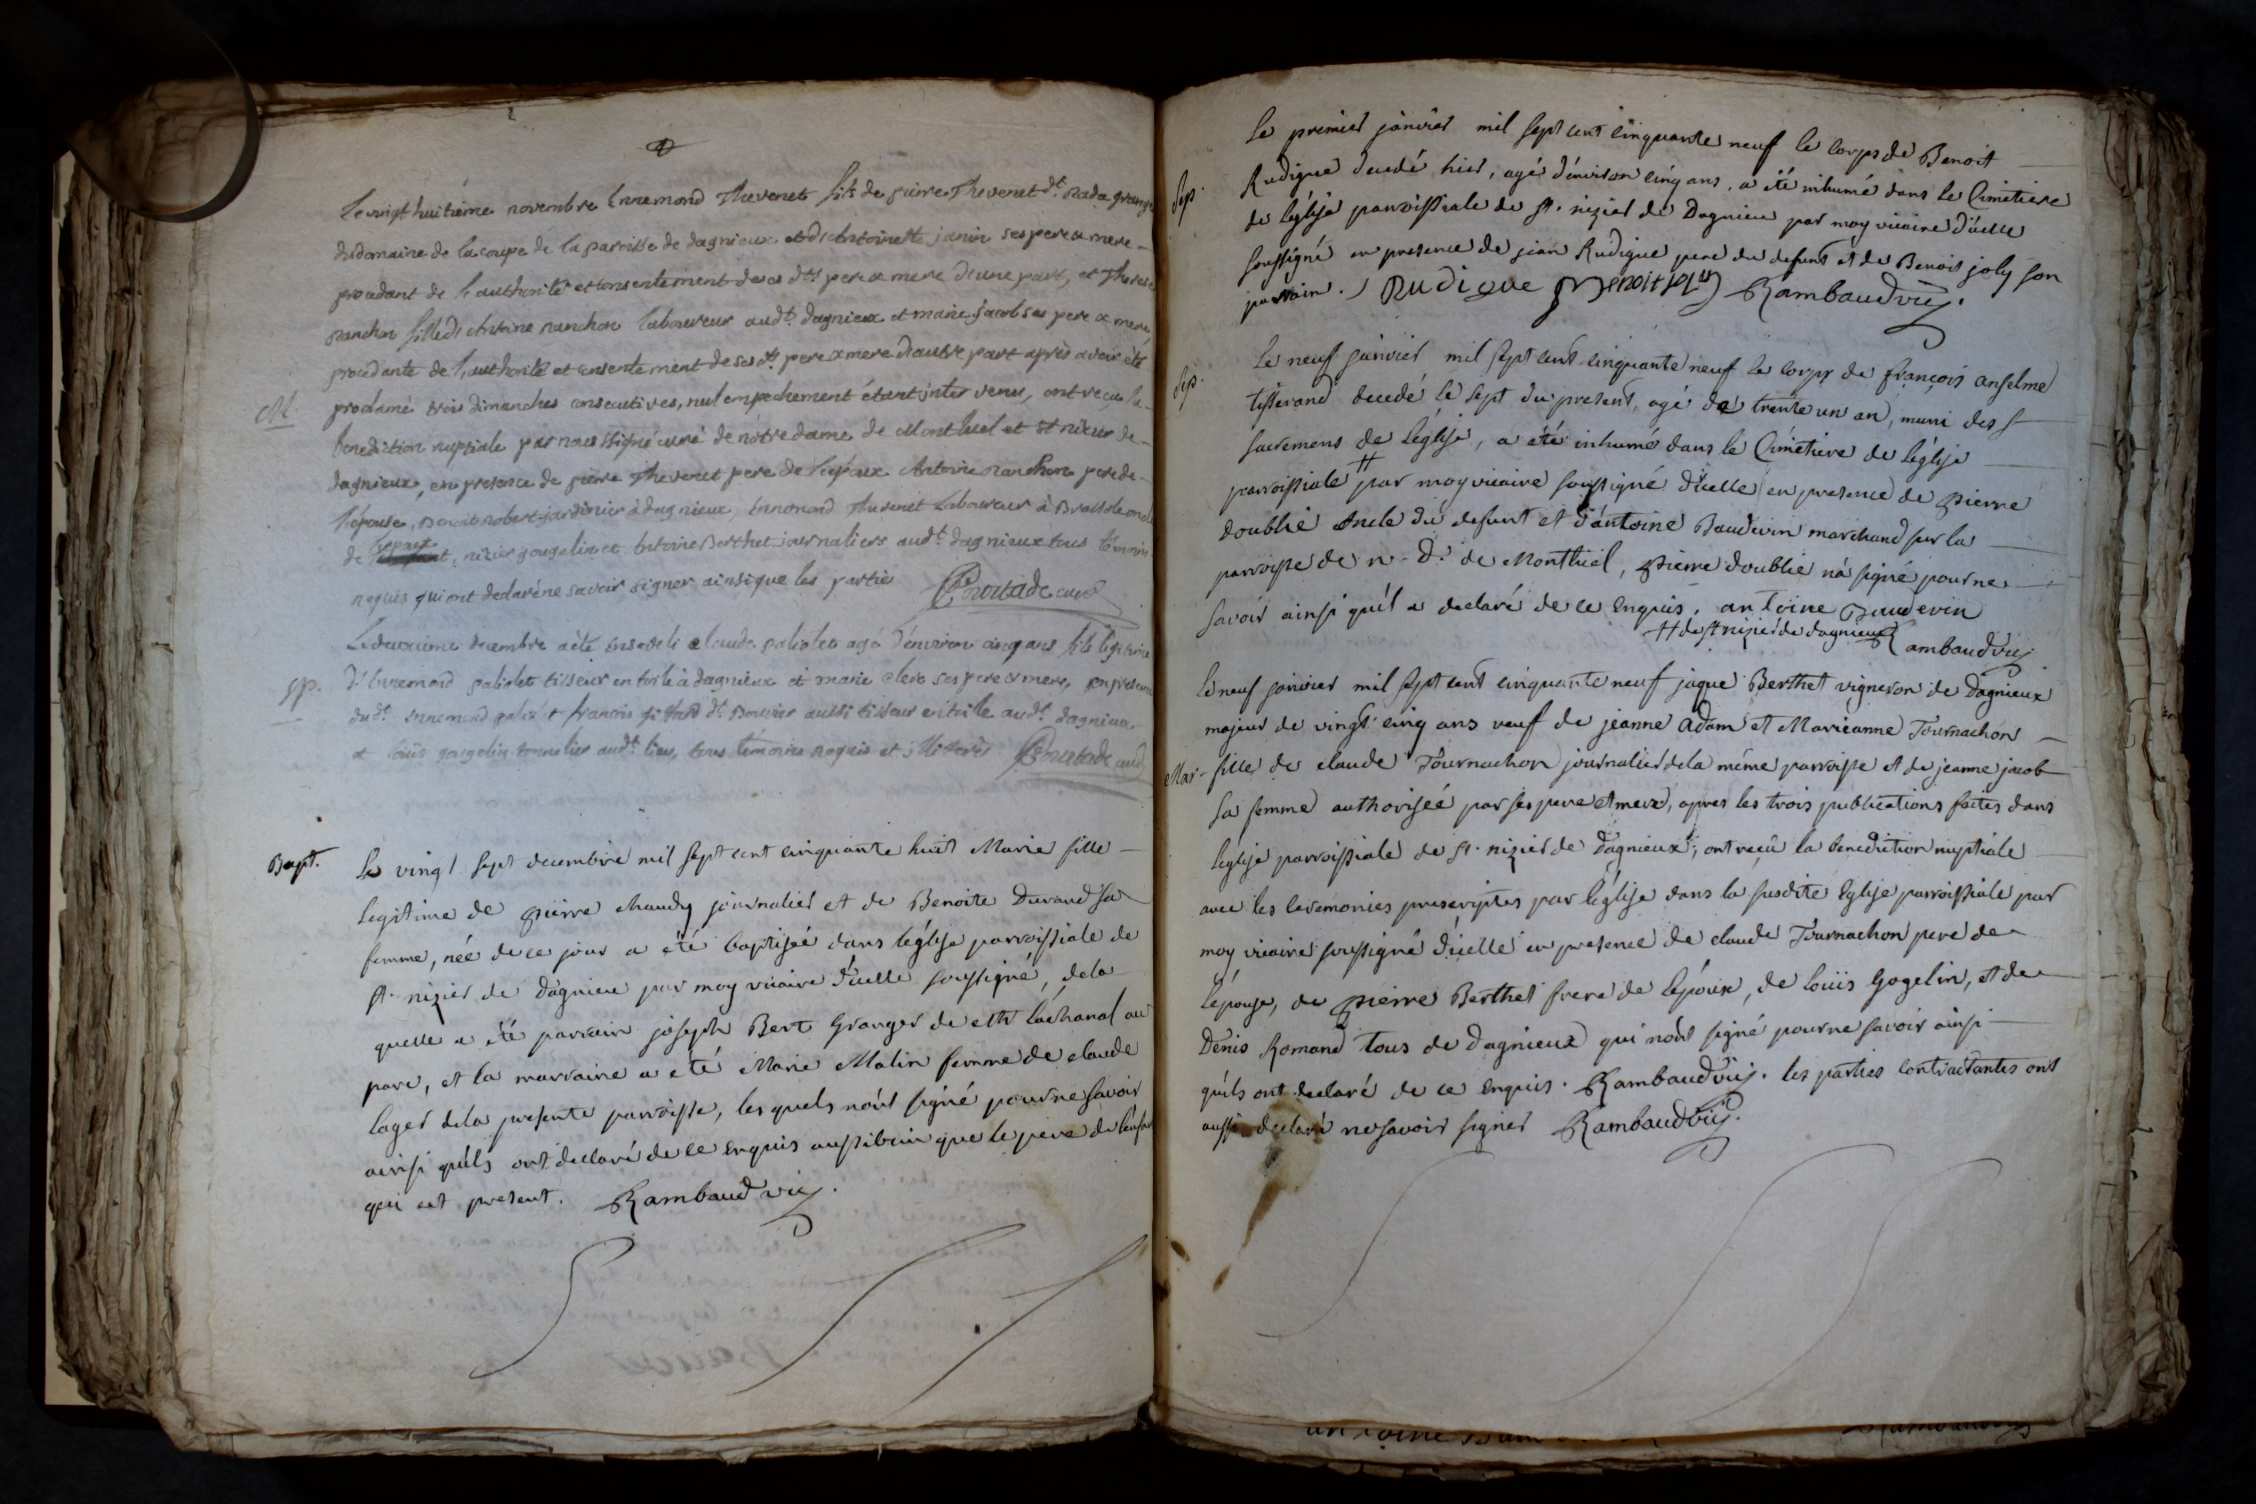 Le vingt huitième novembre Ennemond Thevenet fils de pierre Thevenet dt. grange
du domaine de la coupe de la parroisse de dagnieux et d'Antoinette janin ses pere & mere
procedant de l'authorité et consentement de ses dts pere & mere d'une part, et Therese
panchon fille d'Antoine panchon laboureur audt. dagnieux et marie jacob ses pere & mere,
procedante de l'authorité et consentement de ses dts pere & mere d'autre part après avoir été
M.
proclamé trois dimanches consecutives, nul empechement étant inter venu, ont reçu la
benediction nuptiale par nous ssigné curé de nôtre dame de Montluel et st nizier de
dagnieux, en presence de pierre Thevenet pere de l'epoux Antoine panchon pere de
l'epouse, Benoit robert jardinier à dagnieux, Ennemond Thevenet Laboureur à oncle
de l'epoux, nizier gougelin et Antoine Berthet journaliers audt. dagnieux tous témoins
requis qui ont declaré ne savoir signer ainsi que les parties Courtade curé
Le deuxieme decembre a été enseveli claude paliolet agé d'environ cinq ans fils légitime
sp.
d'Ennemond paliolet tisseur en toile à dagnieux et marie clerc ses pere & mere, en presence
dudt. ennemond et françois dt. Bouvier aussi tisseur en toile audt. dagnieux
et loüis gougelin tonnelier audt. lieu, tous témoins requis et illitterés Courtade curé
Bapt.
Le vingt sept decembre mil sept cent cinquante huit Marie fille
legitime de pierre chaudy journalier et de Benoite Durand sa
femme, née de ce jour a été baptisée dans l'église parroissiale de
st. nizier de dagnieu par moy vicaire d'icelle soussigné, de la
quelle a été parrain joseph Bert Granger de Mr lachanal au
parc, et la marraine a eté Marie Malin femme de claude
lager de la presente parroisse, les quels n'ont signé pour ne savoir
ainsi qu'ils ont declaré de ce enquis aussi bien que le pere de l'enfant
qui est present. Rambaud vic.
Le premier janvier mil sept cent cinquante neuf le corps de Benoit
Sep.
Rudigue decedé hier, agé d'environ cinq ans, a été inhumé dans le Cimetiere
de l'église parroissiale de st. nizier de Dagnieu par moy vicaire d'icelle
soussigné en presence de jean Rudigue pere du defunt et de Benoit joly son
parrain. Rudigue Benoit joly Rambaud vic.
Le neuf janvier mil sept cent cinquante neuf le corps de françois anselme
Sep.
tisserand decedé le sept du present, agé de trente un an, muni des s
sacremens de l'église, a été inhumé dans le Cimétiere de l'église
parroissiale # par moy vicaire soussigné d'icelle en presence de pierre
doublié oncle du defunt et d'antoine Baudevin marchand sur la
parroisse de n. D. de Montluel, pierre doublié n'a signé pour ne
savoir ainsi qu'il a declaré de ce enquis. antoine Baudevin
# de st nizier de dagnieux Rambaud vic.
Le neuf janvier mil sept cent cinquante neuf jaque Berthet vigneron de Dagnieux
majeur de vingt cinq ans veuf de jeanne Adam et Marieanne Tournachon
Mar.
fille de claude Tournachon journalier de la même parroisse et de jeanne jacob
sa femme authorisée par ses pere et mere, apres les trois publications faites dans
l'eglise parroissiale de st. nizier de Dagnieux, ont reçû la benediction nuptiale
avec les ceremonies prescriptes par l'église dans la susdite Eglise parroissiale par
moy vicaire soussigné d'icelle en presence de claude Tournachon pere de
l'épouse, de pierre Berthet frere de l'époux, de loüis Gogelin, et de
Denis Romand tous de dagnieux qui n'ont signé pour ne savoir ainsi
qu'ils ont declaré de ce enquis. Rambaud vic. les parties contractantes ont
aussi declaré ne savoir signer Rambaud vic.